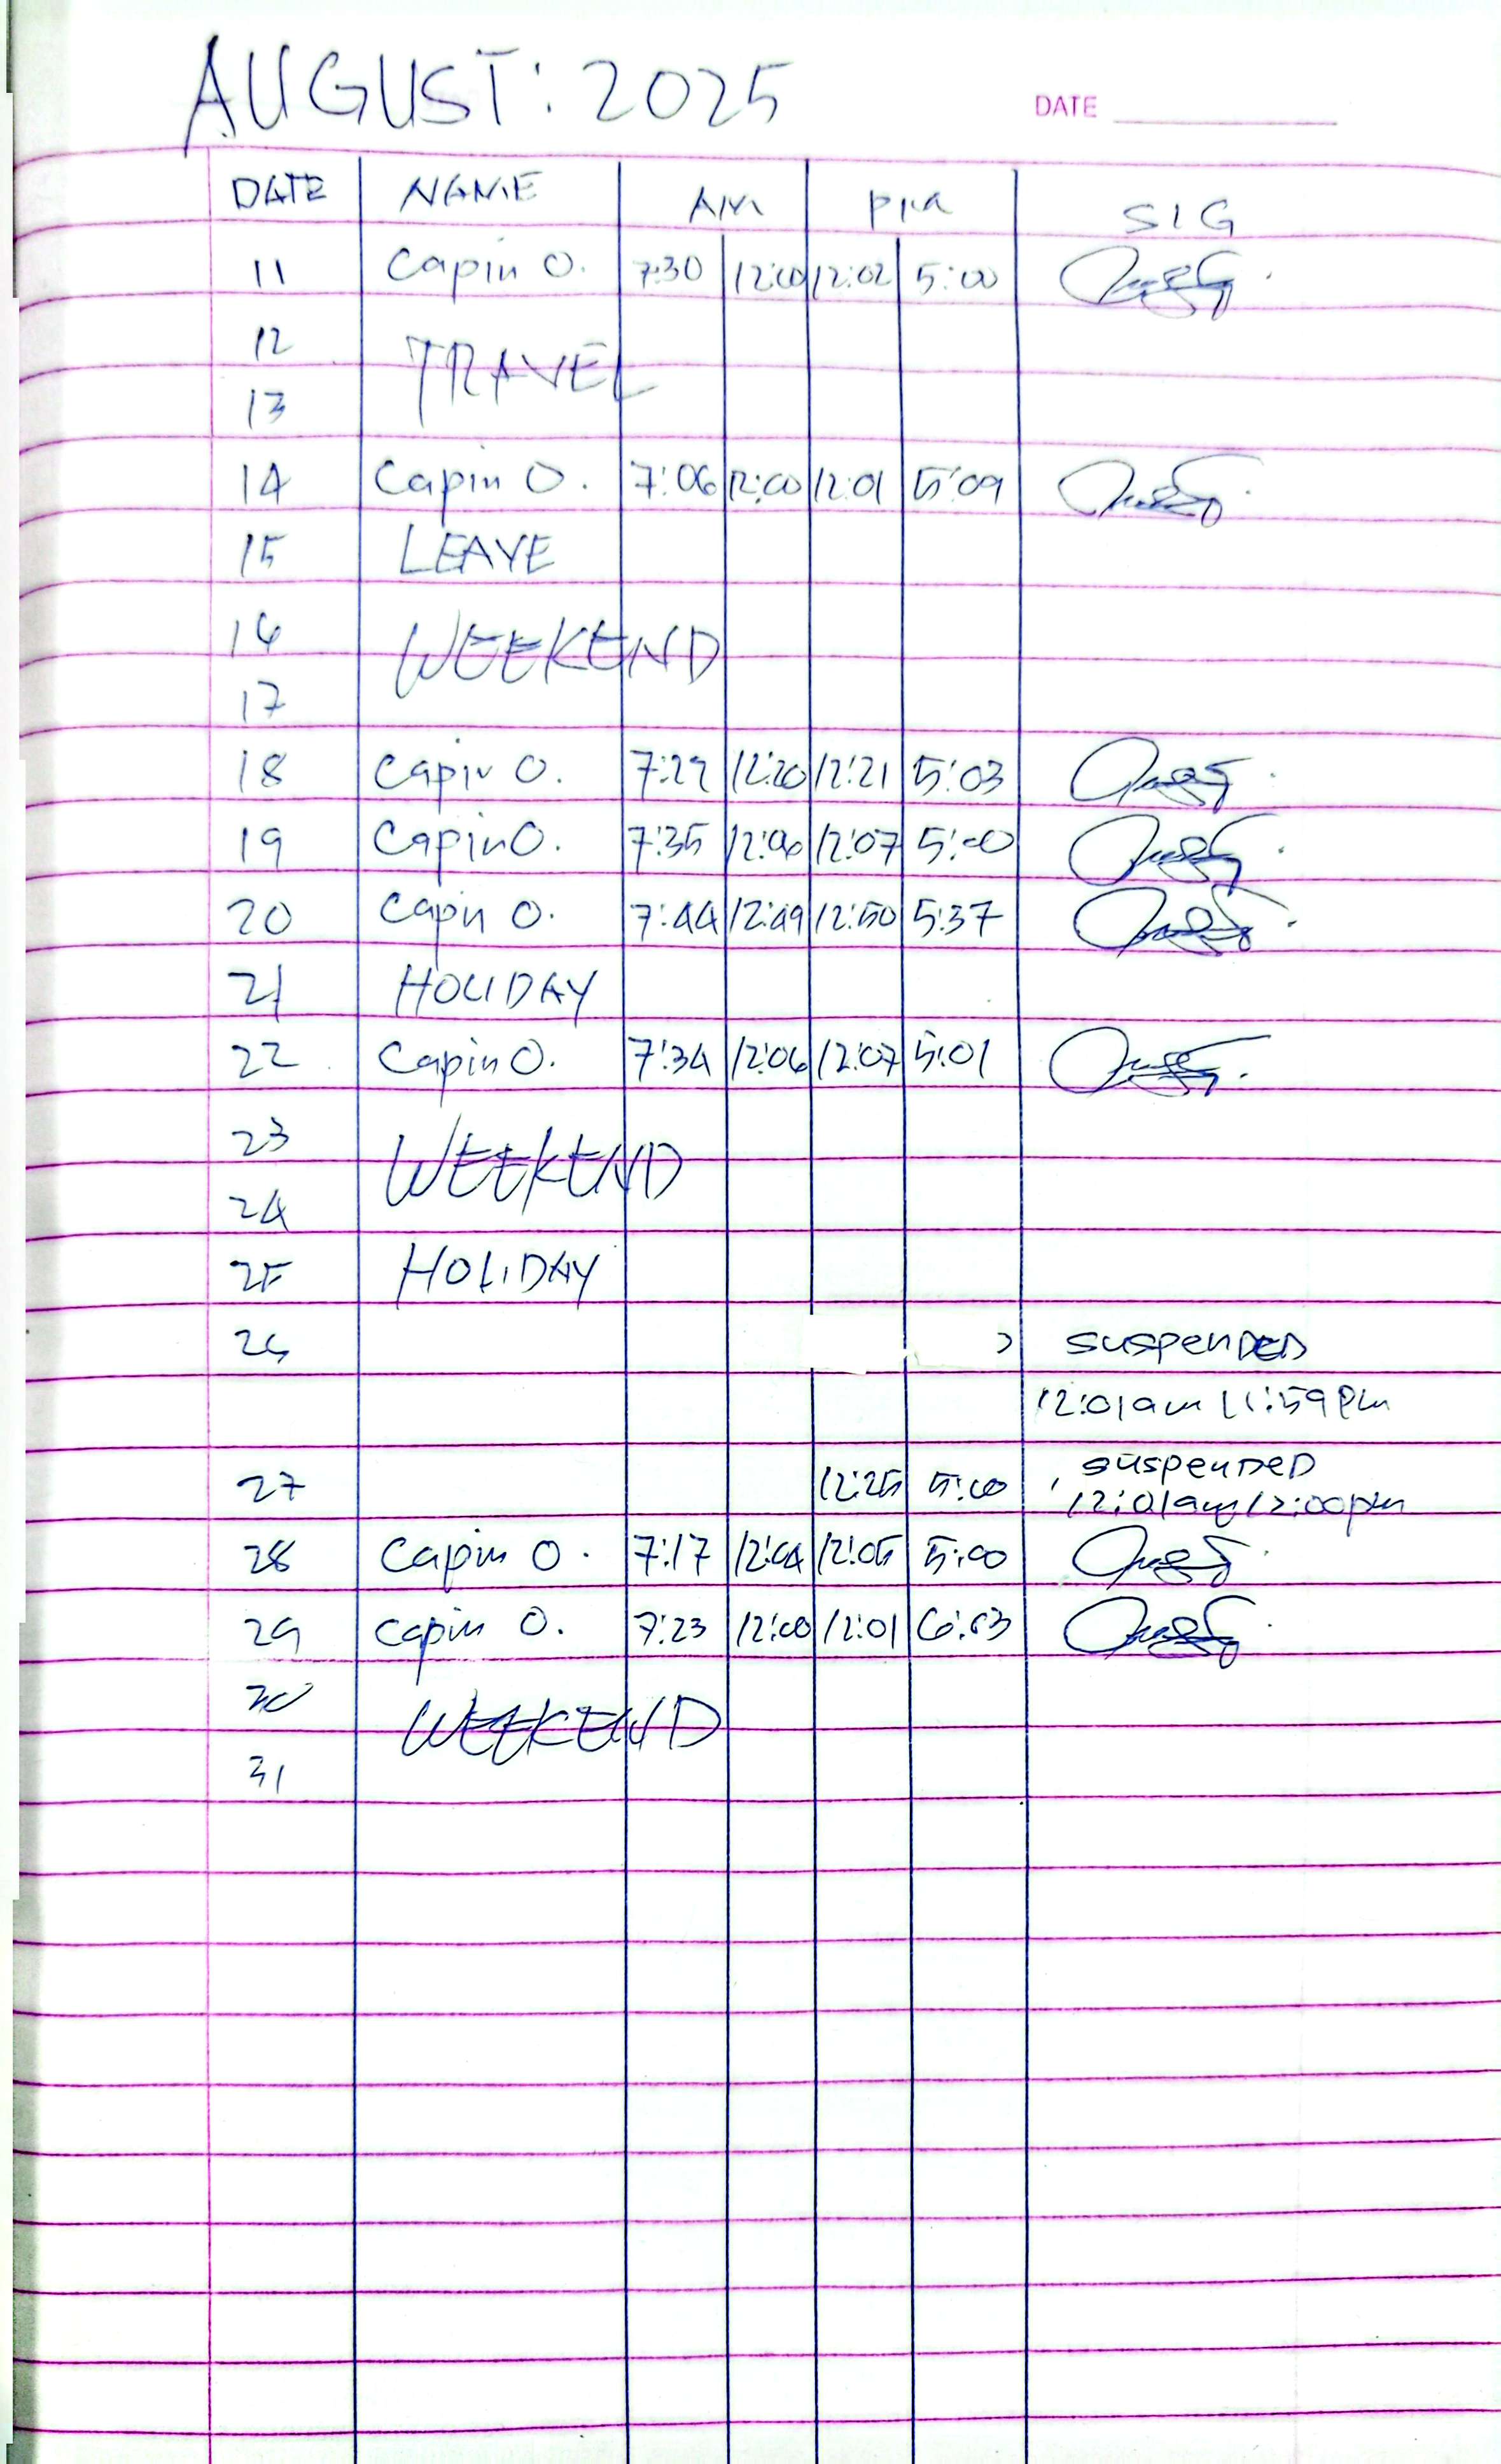 AUGUST: 2025
DATE
DATE NAME AM PM SIG
11 Capin O. 7:30 12:00 12:02 5:00
12
TRAVEL
13
14 Capin O. 7:06 12:00 12:01 5:09
15 LEAVE
16
WEEKEND
17
18 Capin O. 12:20 12:21 5:03
19 Capin O. 7:35 12:06 12:07 5:00
20 Capin O. 7:44 12:49 12:50 5:37
21 HOLIDAY
22 Capin O. 7:34 12:06 12:07 5:01
23
WEEKEND
24
25 HOLIDAY
26 SUSPENDED
12:01am 11:59pm
27 12:25 5:00 SUSPENDED
12:01am 12:00pm
28 Capin O. 7:17 12:04 12:05 5:00
29 Capin O. 7:23 12:00 12:01
30
WEEKEND
31